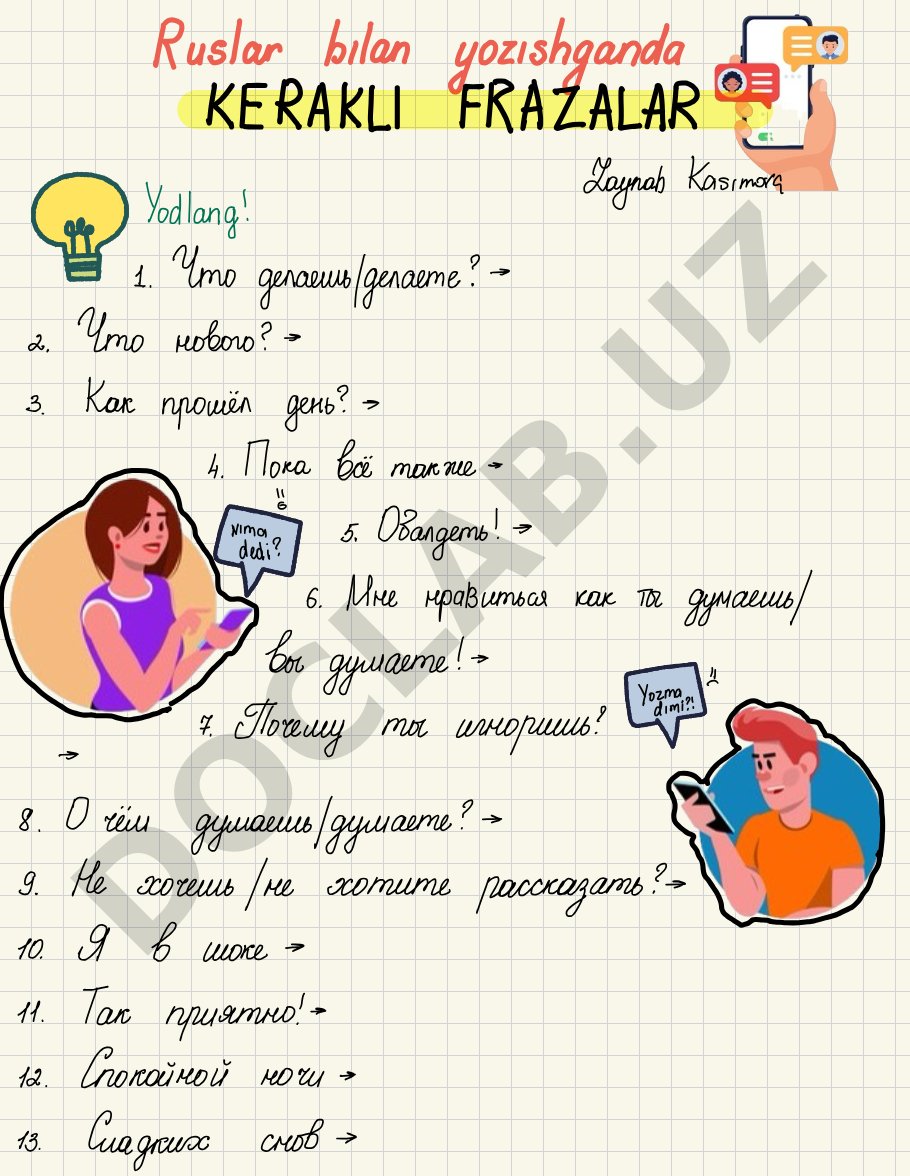 Ruslar bilan yozishganda
KERAKLI FRAZALAR
Zaynab Kasimova
Yodlang!
1. Что делаешь/делаете? →
2. Что нового? →
3. Как прошёл день? →
4. Пока всё также →
Nima
dedi?
5. Обалдеть! →
6. Мне нравиться как ты думаешь/
вы думаете! →
Yozma
dimi?!
7. Почему ты игноришь?
→
8. О чём думаешь/думаете? →
9. Не хочешь/не хотите рассказать? →
10. Я в шоке →
11. Так приятно! →
12. Спокойной ночи →
13. Сладких снов →
DOCLAB.UZ